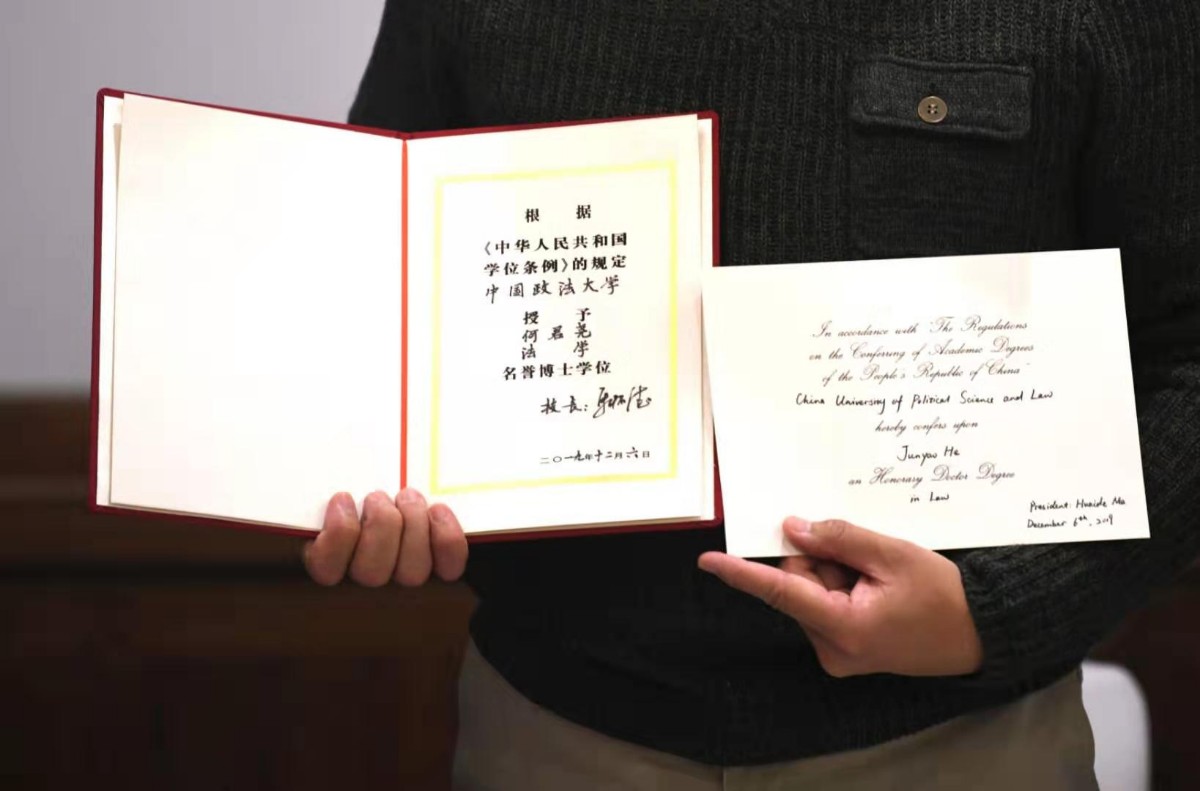 根 据
《中华人民共和国
学位条例》的规定
中国政法大学
授 予
何君尧
法 学
名誉博士学位
校长：
二〇一九年十二月六日
In accordance with "The Regulations
on the Conferring of Academic Degrees
of the People's Republic of China"
China University of Political Science and Law
hereby confers upon
Junyao He
an Honorary Doctor Degree
in Law
President: Huaide Ma
December 6th, 2019